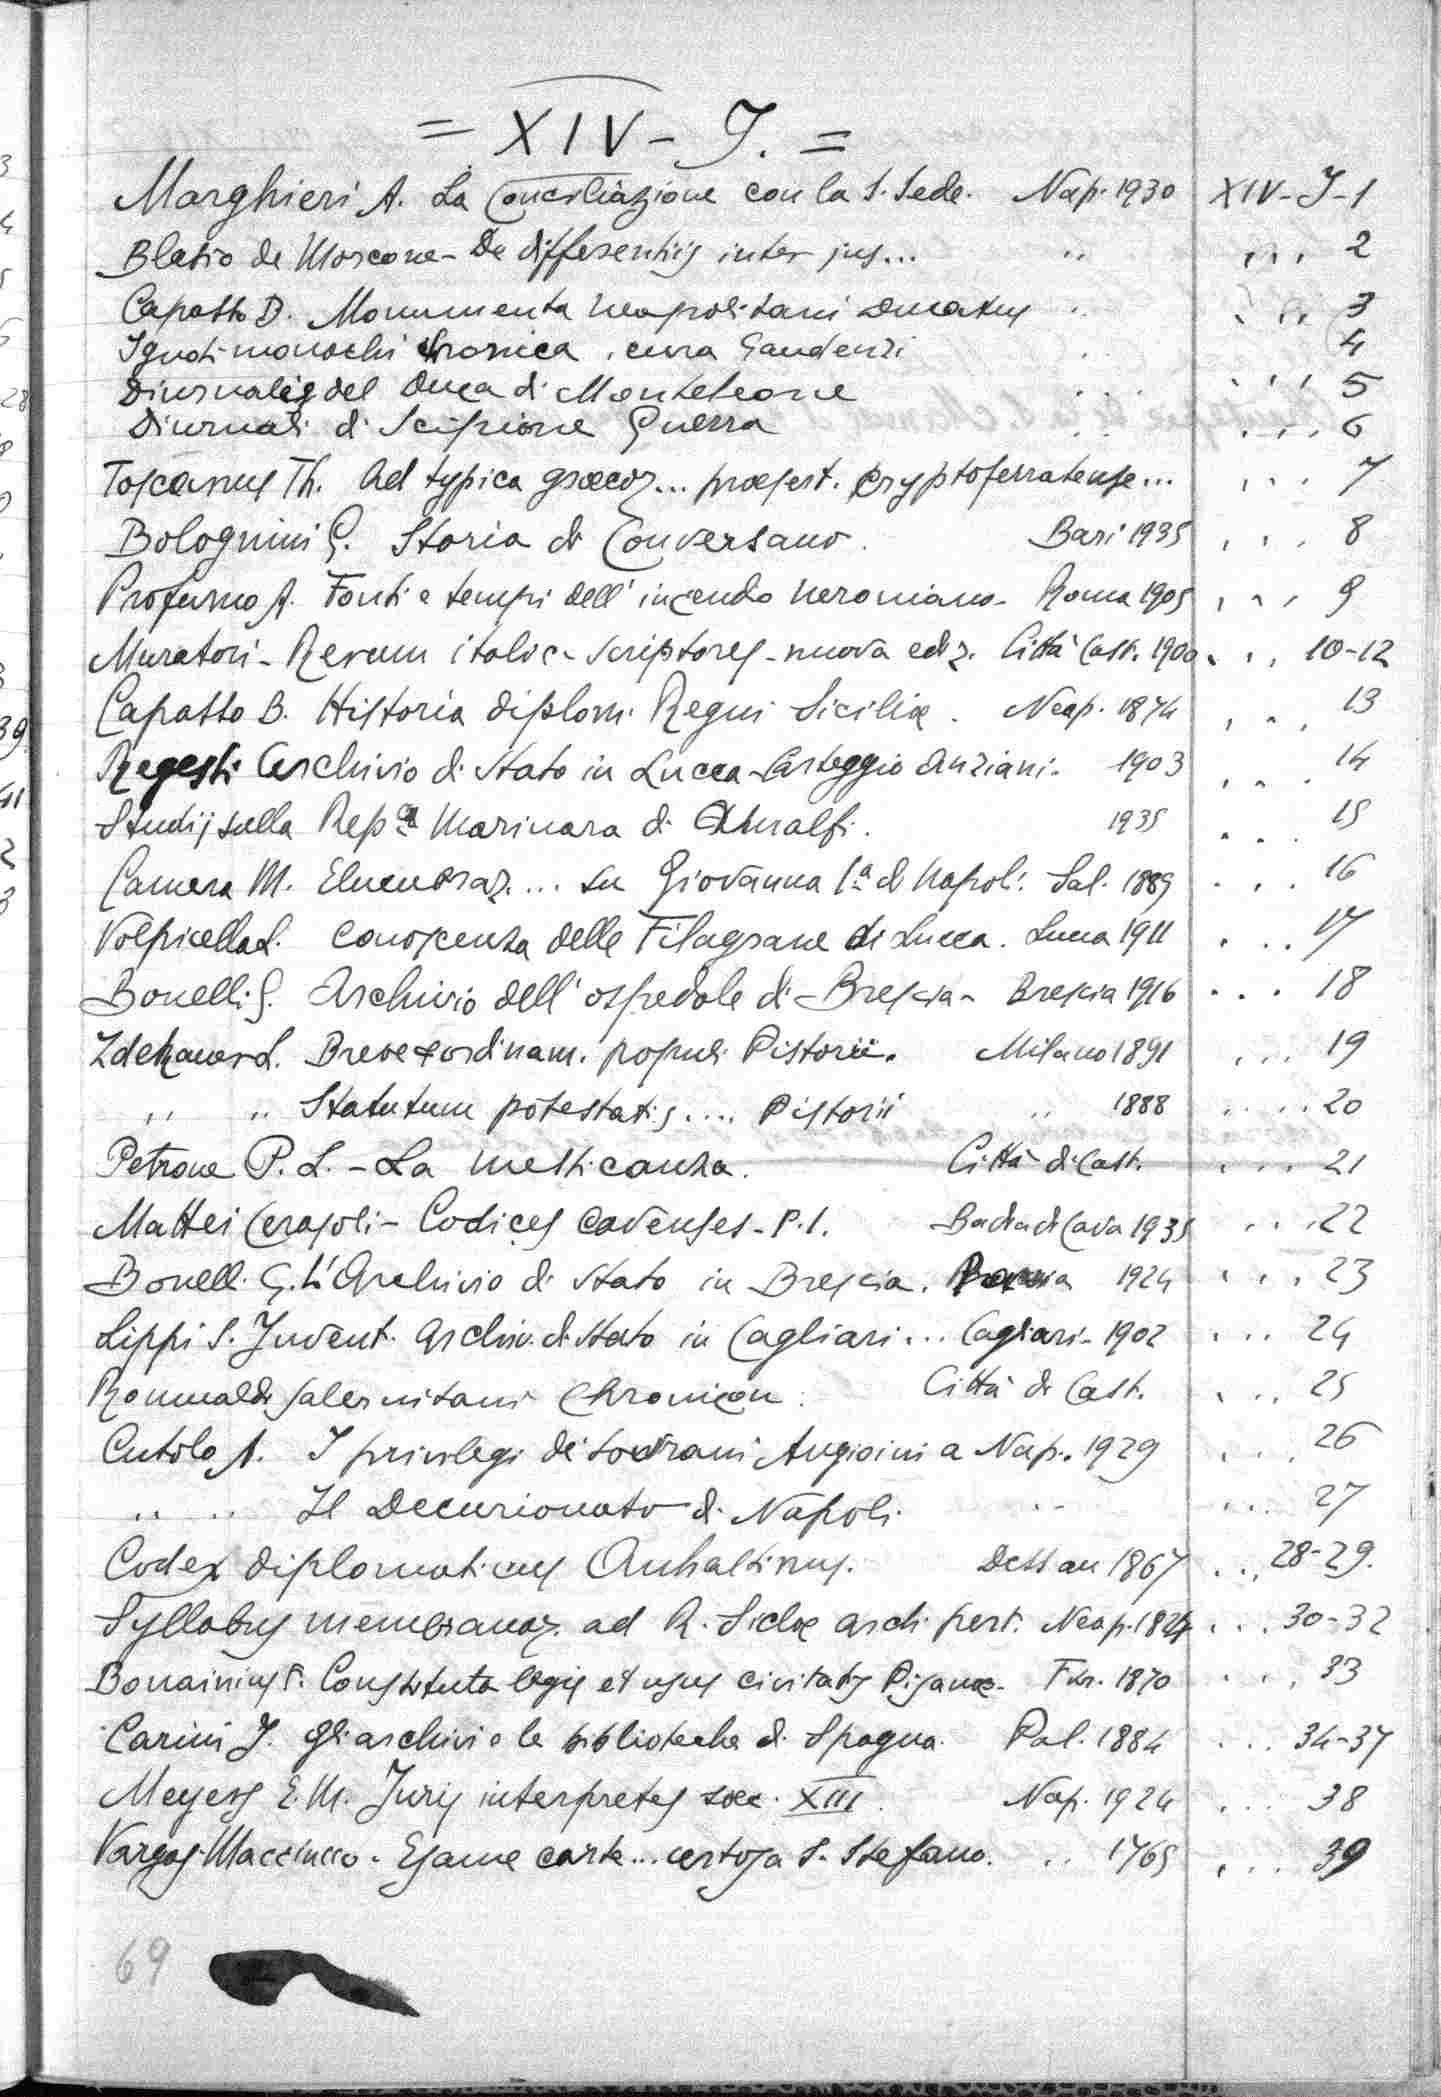 = XIV - J. =
Marghieri A. La Conciliazione con la S. Sede. Nap. 1930 XIV-J-1
Blatio de Morcone - De differentiis inter jus... " " ... 2
Capasso B. Monumenta Neapolitani Ducatus " ... 3
Ignoti monachi Cronica, cura Gaudenzi 4
Diurnali del Duca di Monteleone ... 5
Diurnali di Scipione Guerra ... 6
Toscanus Th. Ad typica græcoz... præsert. Cryptoferratense... ... 7
Bolognini G. Storia di Conversano. Bari 1935 ... 8
Profumo A. Fonti e tempi dell' incendio neroniano - Roma 1905 ... 9
Muratori - Rerum italic - scriptores - nuova ediz. Città Cast. 1900 ... 10-12
Capasso B. Historia diplom. Regni Siciliæ. Neap. 1874 ... 13
Regesti Archivio di Stato in Lucca - Carteggio Anziani - 1903 ... 14
Studij sulla Repca Marinara di Amalfi. 1935 ... 15
Camera M. Elucubraz... su Giovanna Ia di Napoli. Sal. 1889 ... 16
Volpicella L. Conoscenza delle Filagrane di Lucca. Lucca 1911 ... 17
Bonelli G. Archivio dell' ospedale di Brescia - Brescia 1916 ... 18
Zdekauer L. Breve et ordinam. populi Pistorii. Milano 1891 ... 19
" " Statutum potestatis.... Pistorii " 1888 ... 20
Petrone P. L. - La mesticanza. Città di Cast. ... 21
Mattei Cerasoli - Codices Cavenses - P. I. Badia di Cava 1935 ... 22
Bonelli G. L'Archivio di Stato in Brescia. 1924 ... 23
Lippi S. Invent. Archiv. di Stato in Cagliari... Cagliari - 1902 ... 24
Romualdi Salernitani Chronicon. Città di Cast. ... 25
Cutolo A. I privilegi dei sovrani Angioini a Nap. 1929 ... 26
" " Il Decurionato di Napoli. " ... 27
Codex diplomaticus Anhaltinus. Dessau 1867 ... 28-29.
Syllabus membranaz. ad R. Siclæ arch. pert. Neap. 1824 ... 30-32
Bonainius F. Constituta legis et usus civitatis Pisanæ - Fir. 1870 ... 33
Carini J. Gli archivi e le biblioteche di Spagna. Pal. 1884 ... 34-37
Meyers E. M. Juris interpretes sæc. XIII. Nap. 1924 ... 38
Vargas Macciucco - Esame carte... certosa S. Stefano. " 1765 ... 39
69